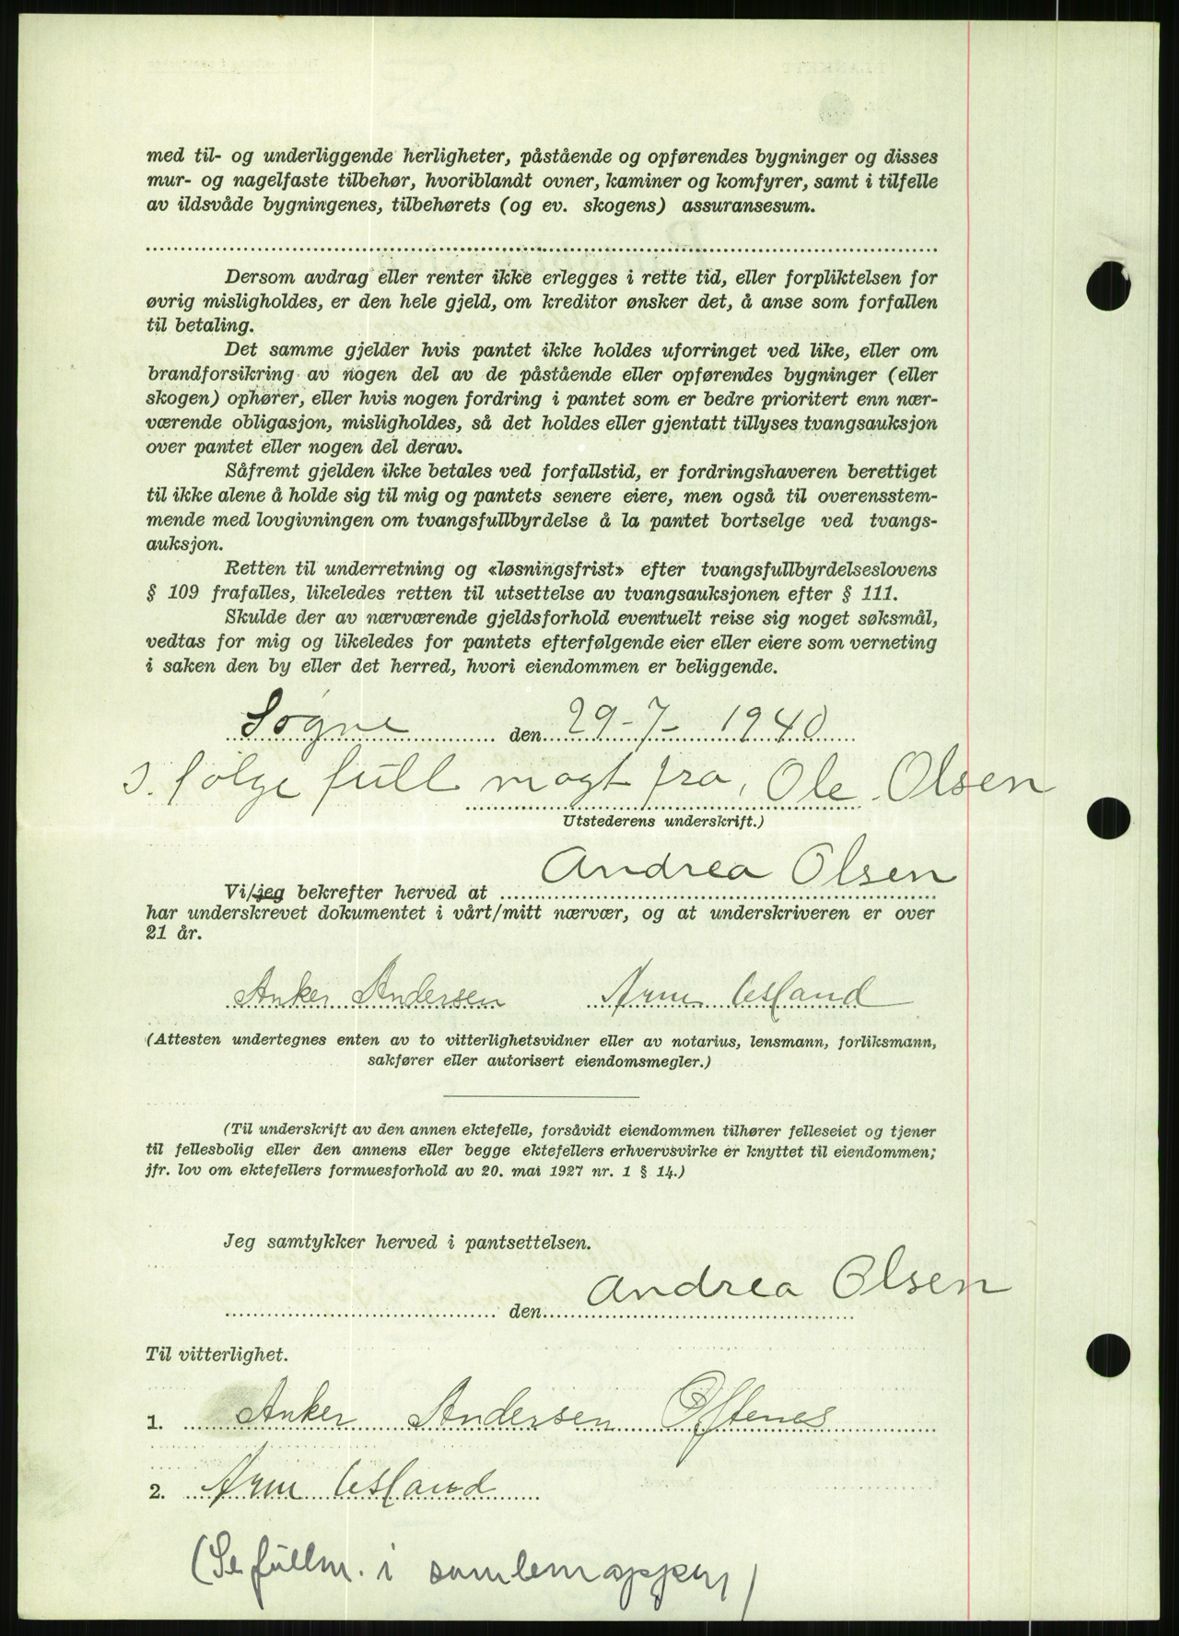 med til- og underliggende herligheter, påstående og opførendes bygninger og disses
mur- og nagelfaste tilbehør, hvoriblandt ovner, kaminer og komfyrer, samt i tilfelle
av ildsvåde bygningenes, tilbehørets (og ev. skogens) assuransesum.
Dersom avdrag eller renter ikke erlegges i rette tid, eller forpliktelsen for
øvrig misligholdes, er den hele gjeld, om kreditor ønsker det, å anse som forfallen
til betaling.
Det samme gjelder hvis pantet ikke holdes uforringet ved like, eller om
brandforsikring av nogen del av de påstående eller opførendes bygninger (eller
skogen) ophører, eller hvis nogen fordring i pantet som er bedre prioritert enn nær-
værende obligasjon, misligholdes, så det holdes eller gjentatt tillyses tvangsauksjon
over pantet eller nogen del derav.
Såfremt gjelden ikke betales ved forfallstid, er fordringshaveren berettiget
til ikke alene å holde sig til mig og pantets senere eiere, men også til overensstem-
mende med lovgivningen om tvangsfullbyrdelse å la pantet bortselge ved tvangs-
auksjon.
Retten til underretning og «løsningsfrist» efter tvangsfullbyrdelseslovens
§ 109 frafalles, likeledes retten til utsettelse av tvangsauksjonen efter § 111.
Skulde der av nærværende gjeldsforhold eventuelt reise sig noget søksmål,
vedtas for mig og likeledes for pantets efterfølgende eier eller eiere som verneting
i saken den by eller det herred, hvori eiendommen er beliggende.
Søgne den 29-7- 1940
I. følge full magt fra, Ole Olsen
Utstederens underskrift.)
Andrea Olsen
Vi/jeg bekrefter herved at
har underskrevet dokumentet i vårt/mitt nærvær, og at underskriveren er over
21 år.
Anker Andersen
(Attesten undertegnes enten av to vitterlighetsvidner eller av notarius, lensmann, forliksmann,
sakfører eller autorisert eiendomsmegler.)
(Til underskrift av den annen ektefelle, forsåvidt eiendommen tilhører felleseiet og tjener
til fellesbolig eller den annens eller begge ektefellers erhvervsvirke er knyttet til eiendommen;
jfr. lov om ektefellers formuesforhold av 20. mai 1927 nr. 1 § 14.)
Jeg samtykker herved i pantsettelsen.
Andrea Olsen
den
Til vitterlighet.
1. Anker Andersen Øftenes
2.
(Se fullm. i samlemappen)